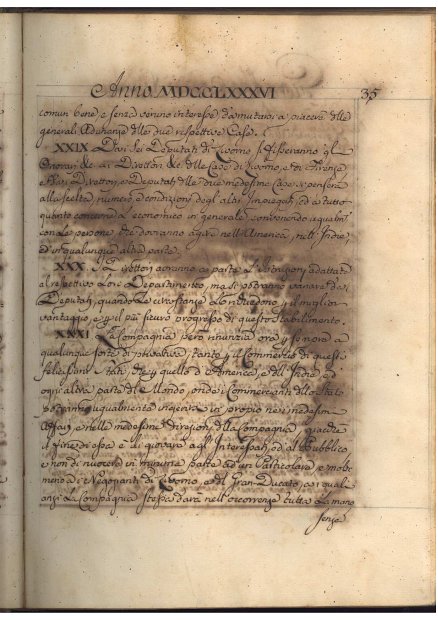 Anno MDCCLXXXVI 35
comun bene, e senza veruno interesse da mutarsi a piacere delle
generali Adunanze delle due rispettive Case.
XXIX Dai Sei Deputati di Livorno si fisseranno gl'
Onorari ai Direttori delle Case di Livorno, e di Firenze
e dai Direttori, e Deputati delle due medesime Case si penserà
alla scelta, numero e condizioni degli altri Impiegati, ed a tutto
quanto concerne l' economico in generale convenendo
con le persone, che dovranno agire nell' America, nell' Indie,
ed in qualunque altra parte.
XXX I Direttori avranno a parte l' Istruzioni adattate
al respettivo Loro Departimento, ma si potranno variare dai
Deputati, quando le circostanze Lo richiedono, e il miglior
vantaggio e il più sicuro progresso di questo Stabilimento.
XXXI La Compagnia però rinunzia ora, e Sempre a
qualunque sorte di privativa, tanto il Commercio di questi
felicissimi Stati, che quello d' America, e dell' India, ed
ogni altra parte del Mondo, onde i Commercianti dello Stato
potranno ugualmente ingerirsi in proprio nei medesimi
Affari, e nelle medesime direzioni della Compagnia, giacchè
il fine di essa è di giovare agl' Interessati, ed al Pubblico
e non di nuocere in minima parte ad un Particolare, e molto
meno ai Negozianti di Livorno, e del Gran-Ducato, ai quali
anzi La Compagnia stessa darà nell' occorrenza tutta La mano
senza